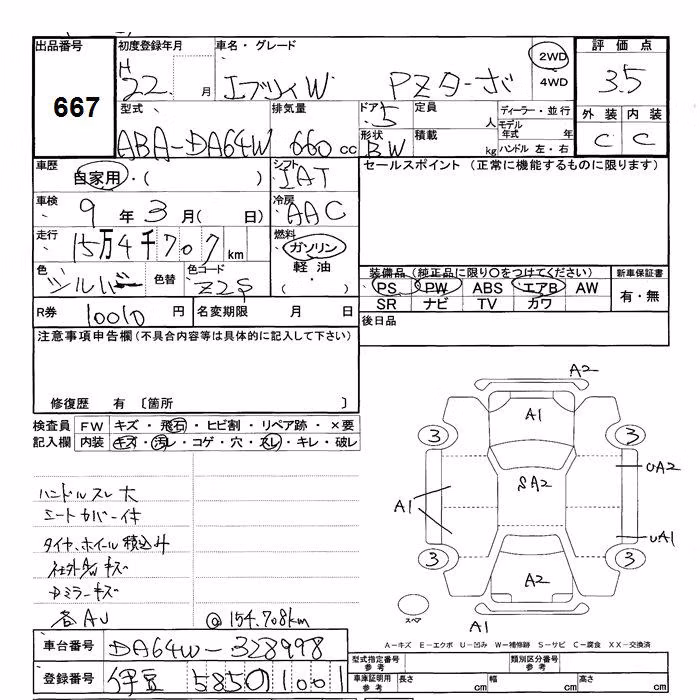 出品番号 初度登録年月 車名・グレード 評価点
667 H22. 月 エブリィW PZターボ 2WD 4WD 3.5
型式 排気量 ドア 定員 ディーラー・並行 外装 内装
ABA-DA64W 660cc 5 人 モデル年式 年 C C
形状 積載 BW kg ハンドル 左・右
車歴 自家用・( ) シフト IAT セールスポイント(正常に機能するものに限ります)
車検 9年3月( 日) 冷房 AAC
走行 15万4千707km 燃料 ガソリン 軽油・( )
色 シルバー 色替 色コード Z2S
装備品(純正品に限り○をつけてください) 新車保証書
PS PW ABS エアB AW 有・無
SR ナビ TV カワ
R券 10010円 名変期限 月 日 後日品
注意事項申告欄(不具合内容等は具体的に記入して下さい)
修復歴 有 〔箇所 〕
検査員 FW キズ・飛石・ヒビ割・リペア跡・×要
記入欄 内装 キズ・汚レ・コゲ・穴・スレ・キレ・破レ
A2
A1
3 3
UA2
SA2
A1
UA1
3 3
A2
スペア
A1
ハンドルスレ大
シートカバー付
タイヤ、ホイール積込み
社外AW キズ
Dミラーキズ
各AU @154.708km
A-キズ E-エクボ U-凹み W-補修跡 S-サビ C-腐食 XX-交換済
車台番号 DA64W-328998
登録番号 伊豆 585 の 1001
型式指定番号 参考 類別区分番号 参考
車庫証明用 参考 長さ cm 幅 cm 高さ cm